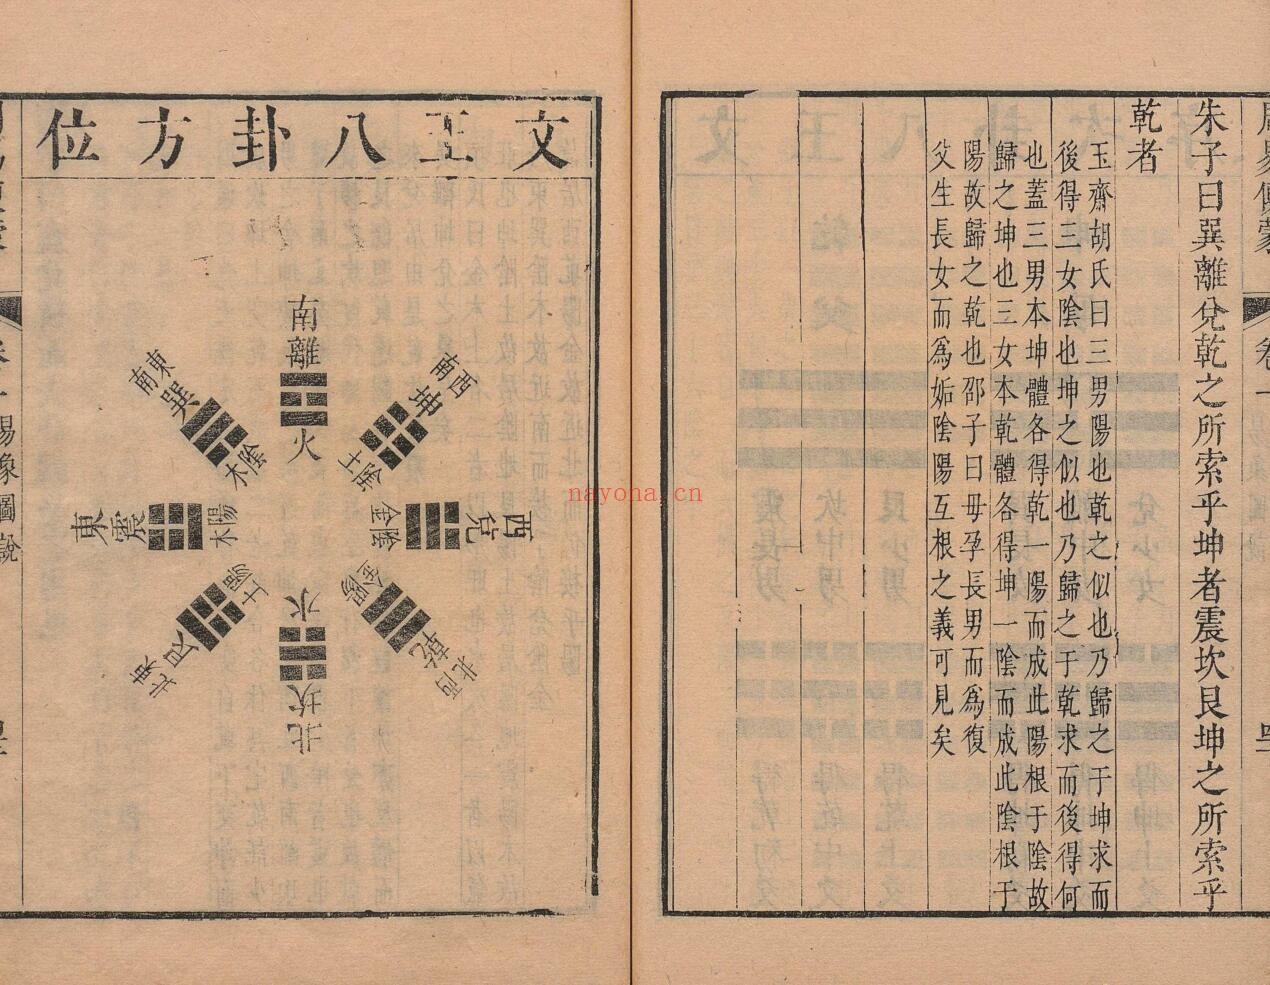 朱子曰巽離兌乾之所索乎坤者震坎艮坤之所索乎
乾者
玉齋胡氏曰三男陽也乾之似也乃歸之于坤求而
後得三女陰也坤之似也乃歸之于乾求而後得何
也蓋三男本坤體各得乾一陽而成此陽根于陰故
歸之坤也三女本乾體各得坤一陰而成此陰根于
陽故歸之乾也邵子曰母孕長男而為復
父生長女而為姤陰陽互根之義可見矣
文王八卦方位
南離
火
西南坤
陰土
西兌
陰金
西北乾
陽金
水
北坎
東北艮
陽土
東震
陽木
東南巽
陰木
易象圖說
nayona.cn